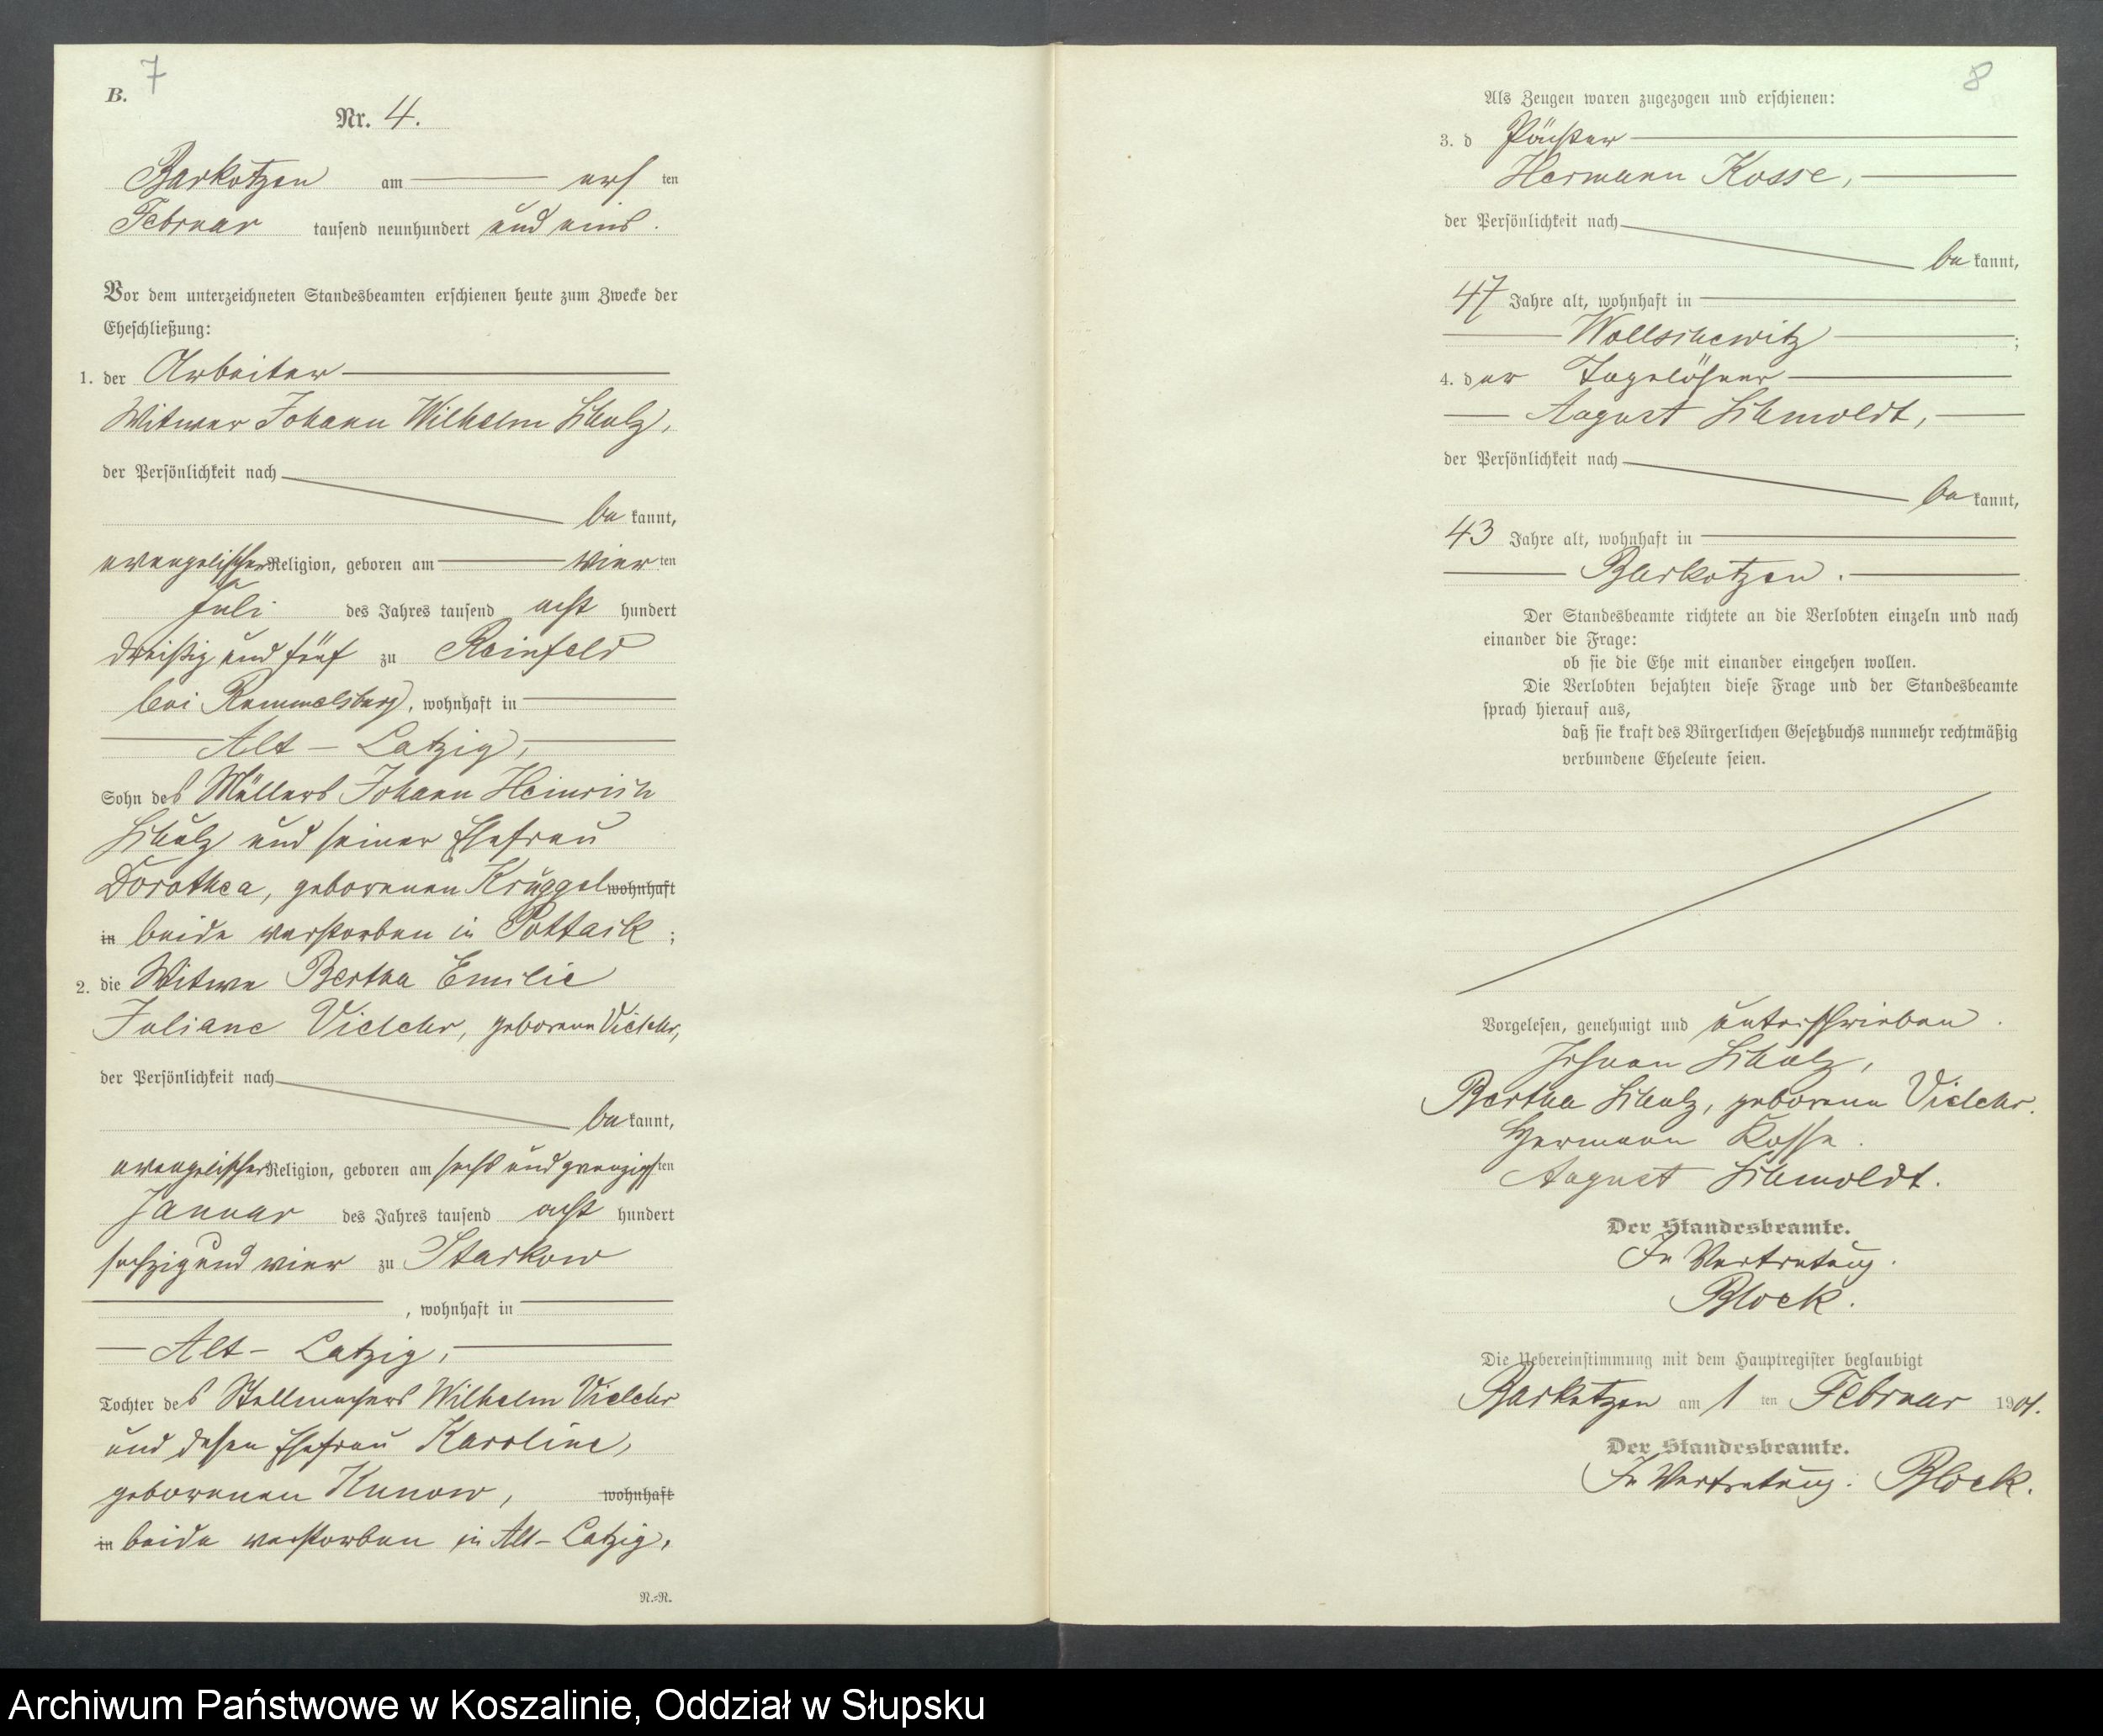 7
B.
Nr. 4.
Barkotzen am ers ten
Februar tausend neunhundert und eins.
Vor dem unterzeichneten Standesbeamten erschienen heute zum Zwecke der
Eheschließung:
1. der Arbeiter
Witwer Johann Wilhelm Schulz,
der Persönlichkeit nach
be kannt,
evangelischer Religion, geboren am vier ten
Juli des Jahres tausend acht hundert
dreißig und fünf zu Reinfeld
bei Rummelsburg, wohnhaft in
Alt - Latzig,
Sohn des Müllers Johann Heinrich
Schulz und seiner Ehefrau
Dorothea, geborenen Krüggel wohnhaft
in beide verstorben in ;
2. die Witwe Bertha Emilie
Juliane Vielehr, geborene Vielehr,
der Persönlichkeit nach
be kannt,
evangelischer Religion, geboren am sechs und zwanzigsten
Januar des Jahres tausend acht hundert
sechzig und vier zu Starkow
, wohnhaft in
Alt - Latzig,
Tochter des Stellmachers Wilhelm Vielehr
und dessen Ehefrau Karoline,
geborenen Kunow, wohnhaft
in beide verstorben in Alt - Latzig.
N.=N.
8
Als Zeugen waren zugezogen und erschienen:
3. d Pächter
Hermann Kosse,
der Persönlichkeit nach
be kannt,
47 Jahre alt, wohnhaft in
Wollschewitz ;
4. der Tagelöhner
August Schmoldt,
der Persönlichkeit nach
be kannt,
43 Jahre alt, wohnhaft in
Barkotzen.
Der Standesbeamte richtete an die Verlobten einzeln und nach
einander die Frage:
ob sie die Ehe mit einander eingehen wollen.
Die Verlobten bejahten diese Frage und der Standesbeamte
sprach hierauf aus,
daß sie kraft des Bürgerlichen Gesetzbuchs nunmehr rechtmäßig
verbundene Eheleute seien.
Vorgelesen, genehmigt und unterschrieben.
Johann Schulz,
Bertha Schulz, geborene Vielehr.
Hermann Kosse.
August Schmoldt.
Der Standesbeamte.
In Vertretung.
Block.
Die Uebereinstimmung mit dem Hauptregister beglaubigt
Barkotzen am 1 ten Februar 1901.
Der Standesbeamte.
In Vertretung: Block.
Archiwum Państwowe w Koszalinie, Oddział w Słupsku